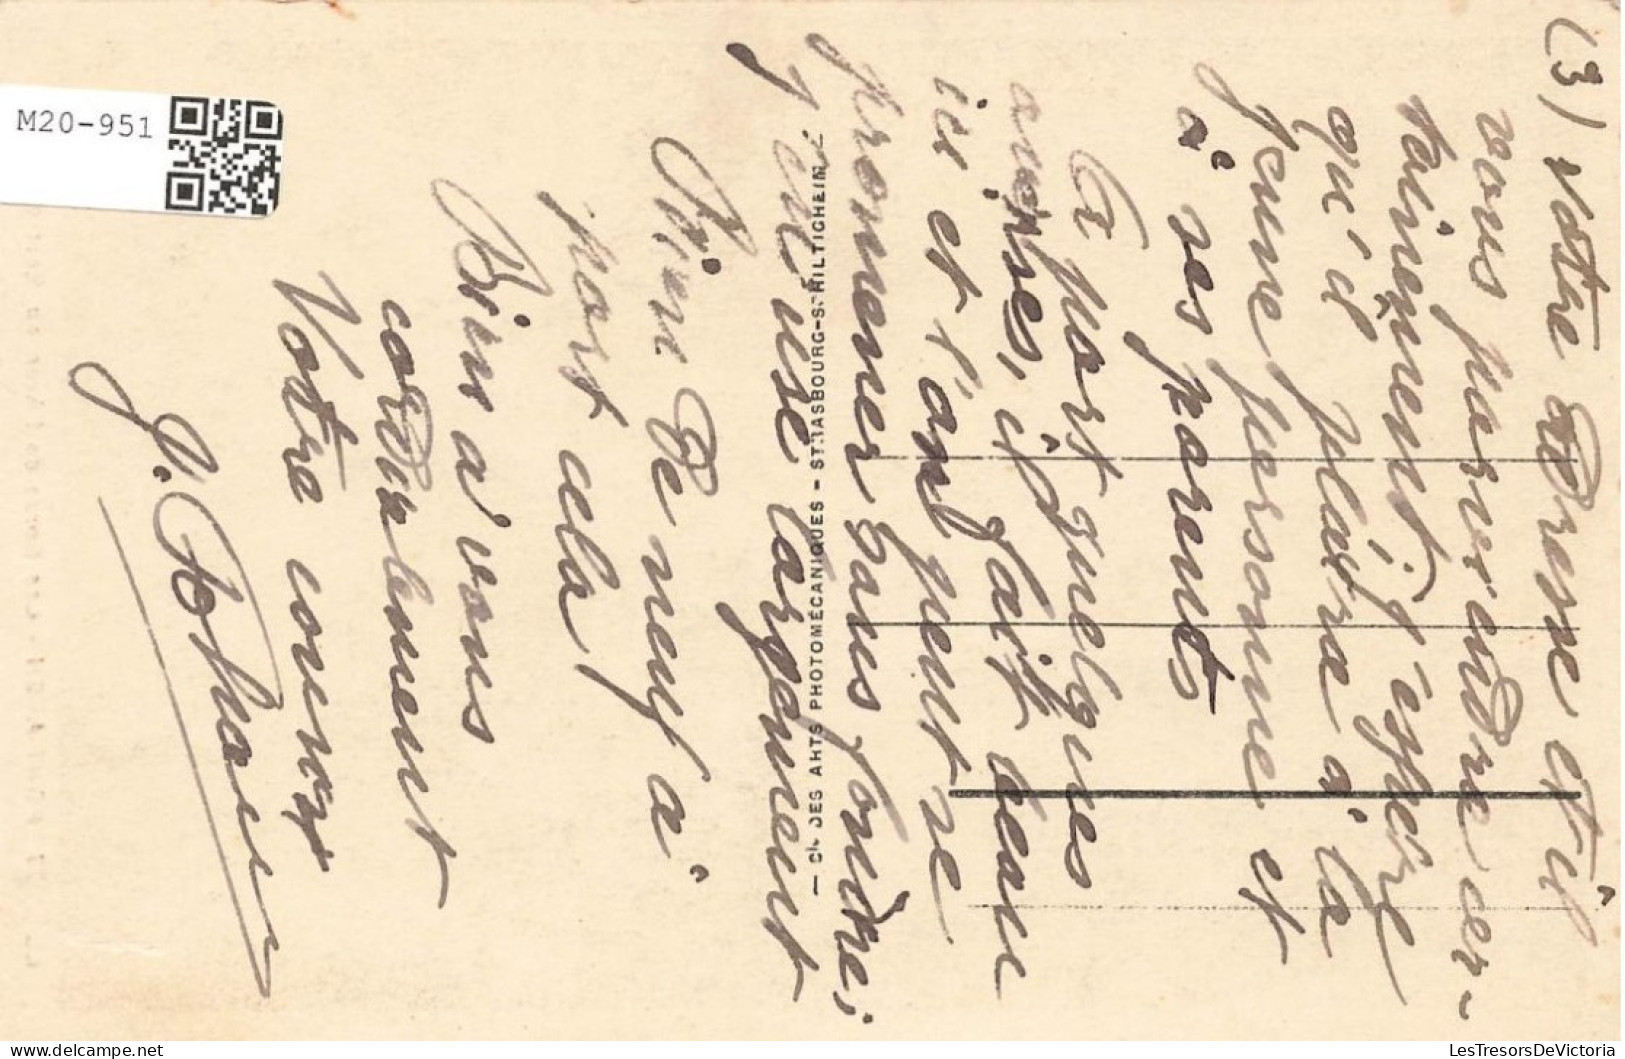 (3) votre adresse et il
vous parviendra cer-
tainement, j'espère
qu'il plaira à la
jeune personne et
à ses parents
A part quelques
averses, il fait beau
ici et l'on peut se
promener sans fondre;
j'en use largement
Rien de neuf à
part cela
Bien à vous
cordialement
Votre cousin
J.
— Cie DES ARTS PHOTOMÉCANIQUES - STRASBOURG-SCHILTIGHEIM
M20-951
LesTresorsDeVictoria